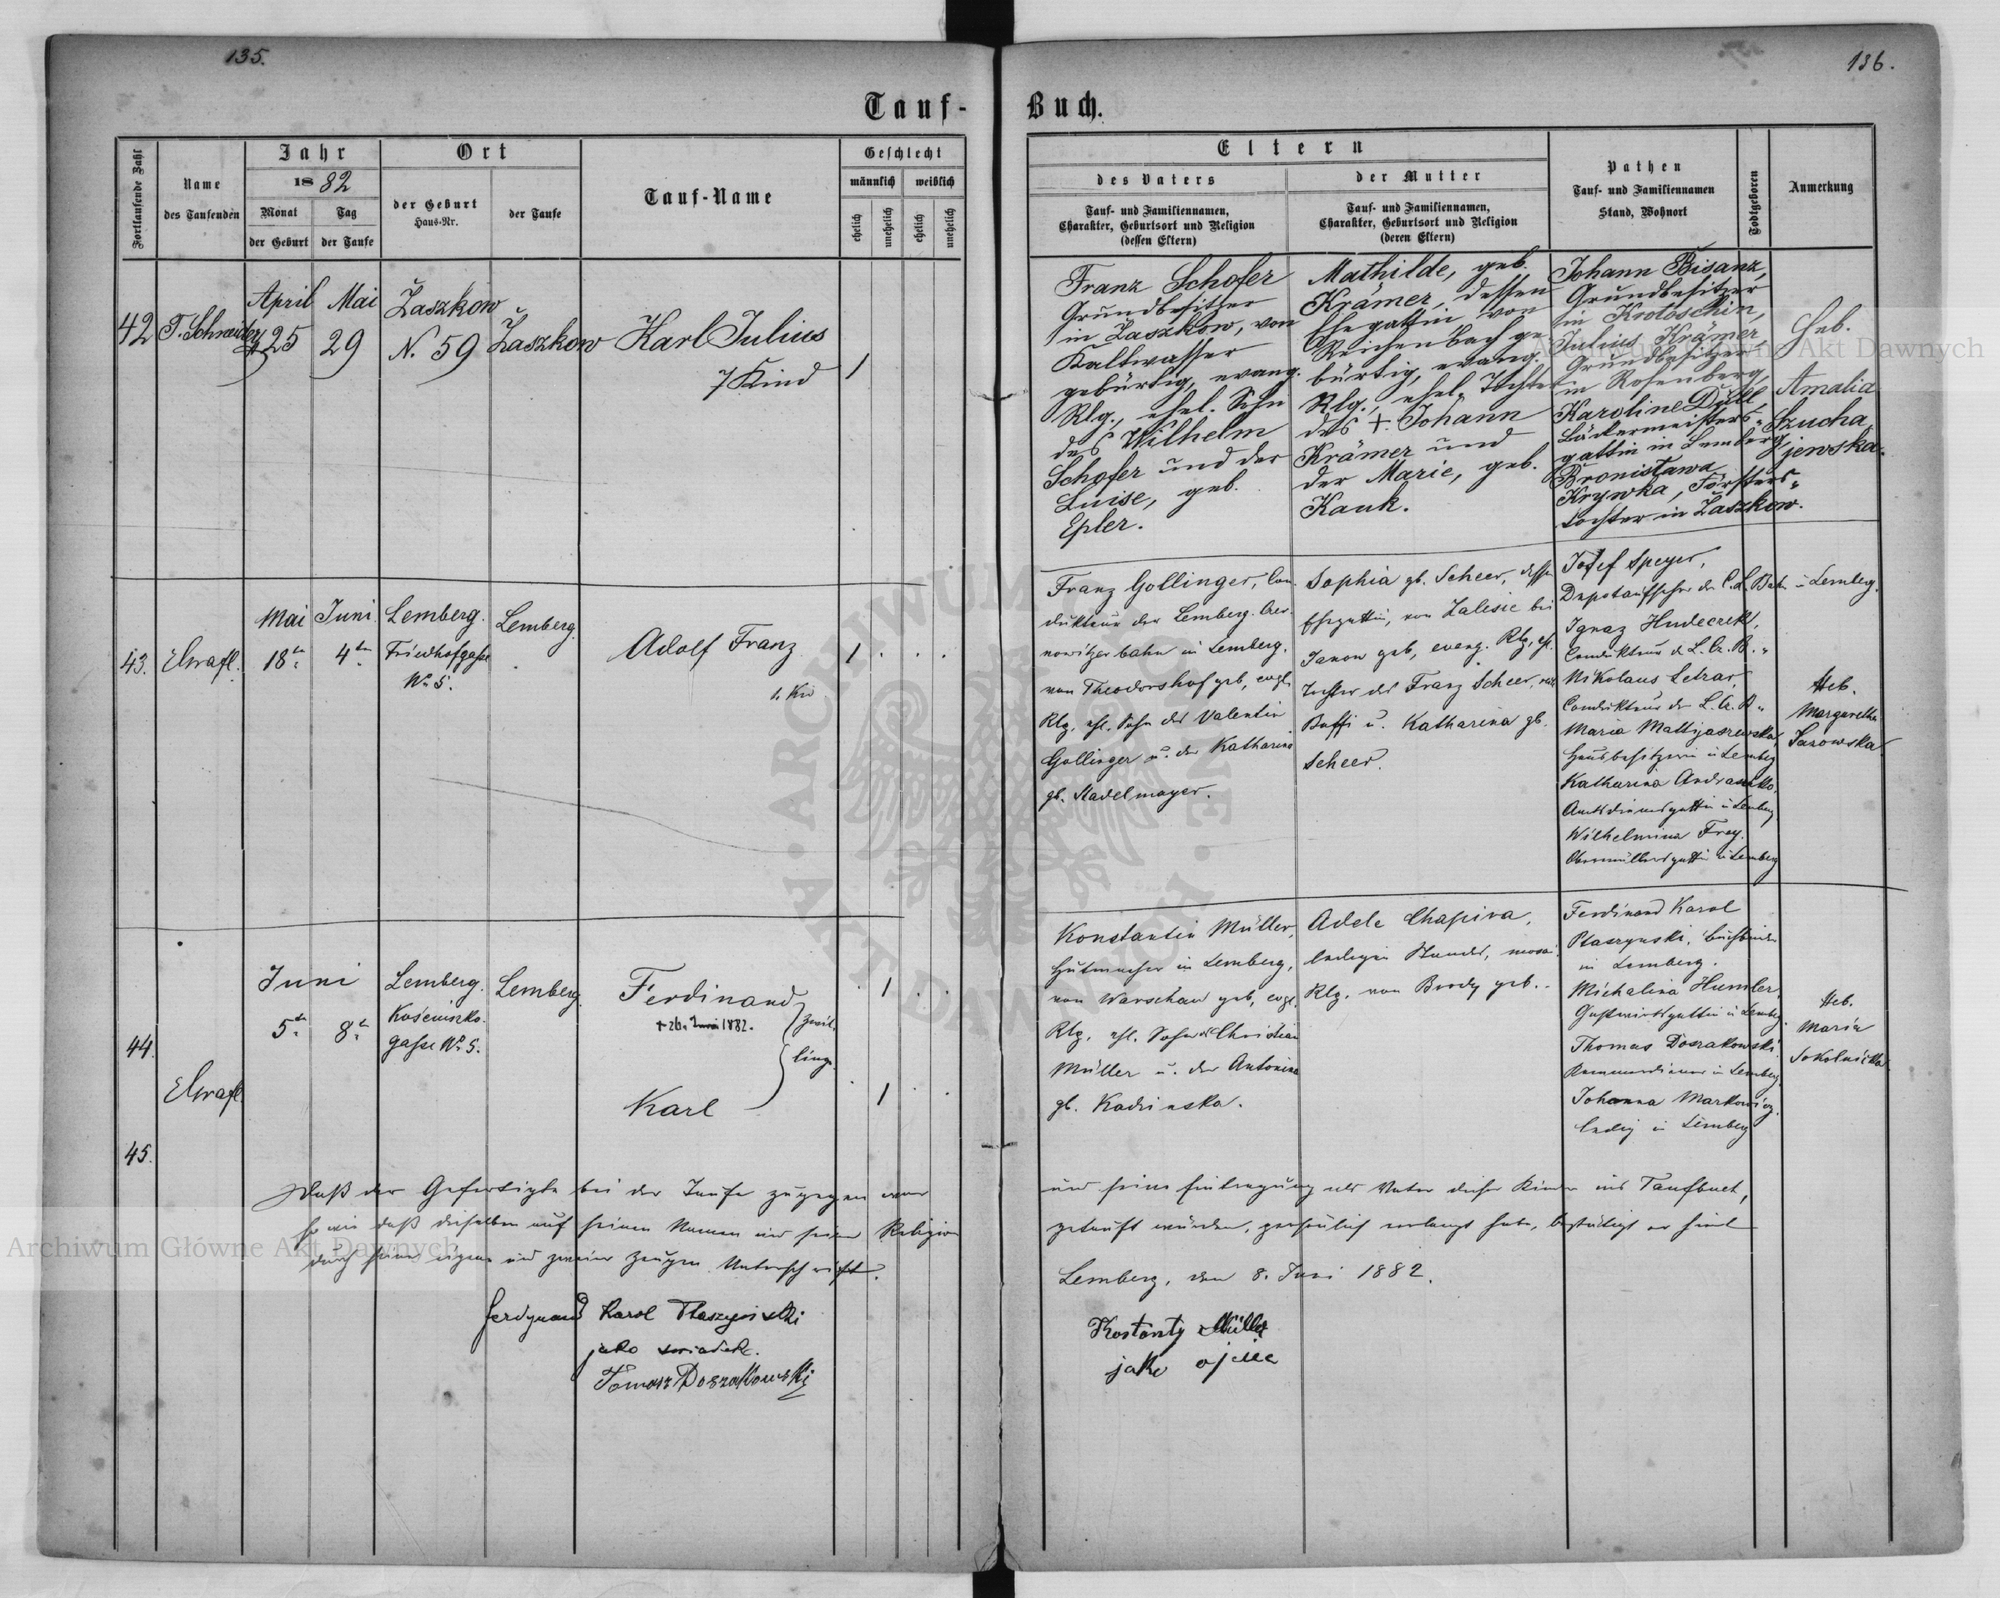 135.
136.
Tauf-
Buch.
Fortlaufende Zahl
Name
des Taufenden
Jahr
1882
Monat
der Geburt
Tag
der Taufe
Ort
der Geburt
Haus-Nr.
der Taufe
Tauf-Name
Geschlecht
männlich
weiblich
ehelich
unehelich
ehelich
unehelich
Eltern
des Vaters
Tauf- und Familiennamen,
Charakter, Geburtsort und Religion
(dessen Eltern)
der Mutter
Tauf- und Familiennamen,
Charakter, Geburtsort und Religion
(deren Eltern)
Pathen
Tauf- und Familiennamen
Stand, Wohnort
Todtgeboren
Anmerkung
42
T. Schneider
April
25
Mai
29
Żaszkow
N. 59
Żaszkow
Karl Julius
7 Kind
1
Franz Schofer
Grundbesitzer
in Żaszkow, von
Kaltwasser
gebürtig, evang.
Rlg., ehel. Sohn
des Wilhelm
Schofer und der
Luise, geb.
Epler.
Mathilde, geb.
Krämer, dessen
Ehegattin von
Reichenbach ge
bürtig, evang.
Rlg., ehel. Tochter
des +. Johann
Krämer und
der Marie, geb.
Kauk.
Johann Bisanz,
Grundbesitzer
in Krotoschin,
Julius Krämer
Grundbesitzer
in Rosenberg,
Karoline Düll
Bäckermeisters-
gattin in Lemberg
Bronisława
Krywka, Försters-
tochter in Żaszkow.
Heb.
Amalia
Szucha
jewska.
43.
Mai
18te
Juni
4ten
Lemberg.
Friedhofgasse
No 5.
Lemberg.
Adolf Franz
1. Kin
1
Franz Gollinger, Con-
dukteur der Lemberg. Czer-
nowitzer bahn in Lemberg.
von Theodorshof geb, evgl.
Rlg. ehl. Sohn des Valentin
Gollinger u. der Katharina
gb. Stadelmayer.
Sophia gb. Scheer, dessen
Ehegattin, von Zalesie bei
Janow geb, evang. Rlg, ehl.
Tochter des Franz Scheer,
u. Katharina gb.
Scheer.
Josef Speyer,
Depotaufseher der C. L. Bahn in Lemberg.
Ignaz Hudeczek,
Condukteur d. L. Cz. B. "
Nikolaus
Condukteur der L. Cz. B "
Maria Mattyaszewska,
Hausbesitzerin in Lemberg
Katharina Andraszko,
Amtsdienersgattin in Lemberg
Wilhelmina Frey.
Obermüllersgattin in Lemberg
Heb.
Margaretha
Sarowska
44.
45.
Juni
5te
8te
Lemberg.
Kościuszko-
gasse No 5.
Lemberg.
Ferdinand
+ 26. Juni 1882.
Zwil-
linge
Karl
1
1
Konstantin Müller,
Hutmacher in Lemberg,
von Warschau geb, evgl.
Rlg, ehl. Sohn des Christian
Müller u. der Antonina
gb. Kadzinska.
Adele Chapira,
ledigen Standes, mosai.
Rlg. von Brody geb.
Ferdinand Karol
Ptaszynski, Buchbinder
in Lemberg.
Michalina Humler,
Gastwirthsgattin in Lemberg.
Thomas Doszakowski
Kammerdiener in Lemberg.
Johanna Markowicz,
ledig in Lemberg
Heb.
Maria
Sokolnicka
Daß der Gefertigte bei der Taufe zugegen war
und seine Eintragung als Vater dieser Kinder ins Taufbuch,
so wie daß dieselben auf seinen Namen und seine Religion
getauft würden, persönlich verlangt habe, bestätigt er hiemit
durch seine eigene und zweier Zeugen Unterschrift.
Lemberg, den 8. Juni 1882.
Ferdynand Karol Ptaszyński
jako świadek.
Tomasz Doszakowski
Kostanty Müller
jako ojciec
Archiwum Główne Akt Dawnych
Archiwum Główne Akt Dawnych
ARCHIWUM GŁÓWNE AKT DAWNYCH